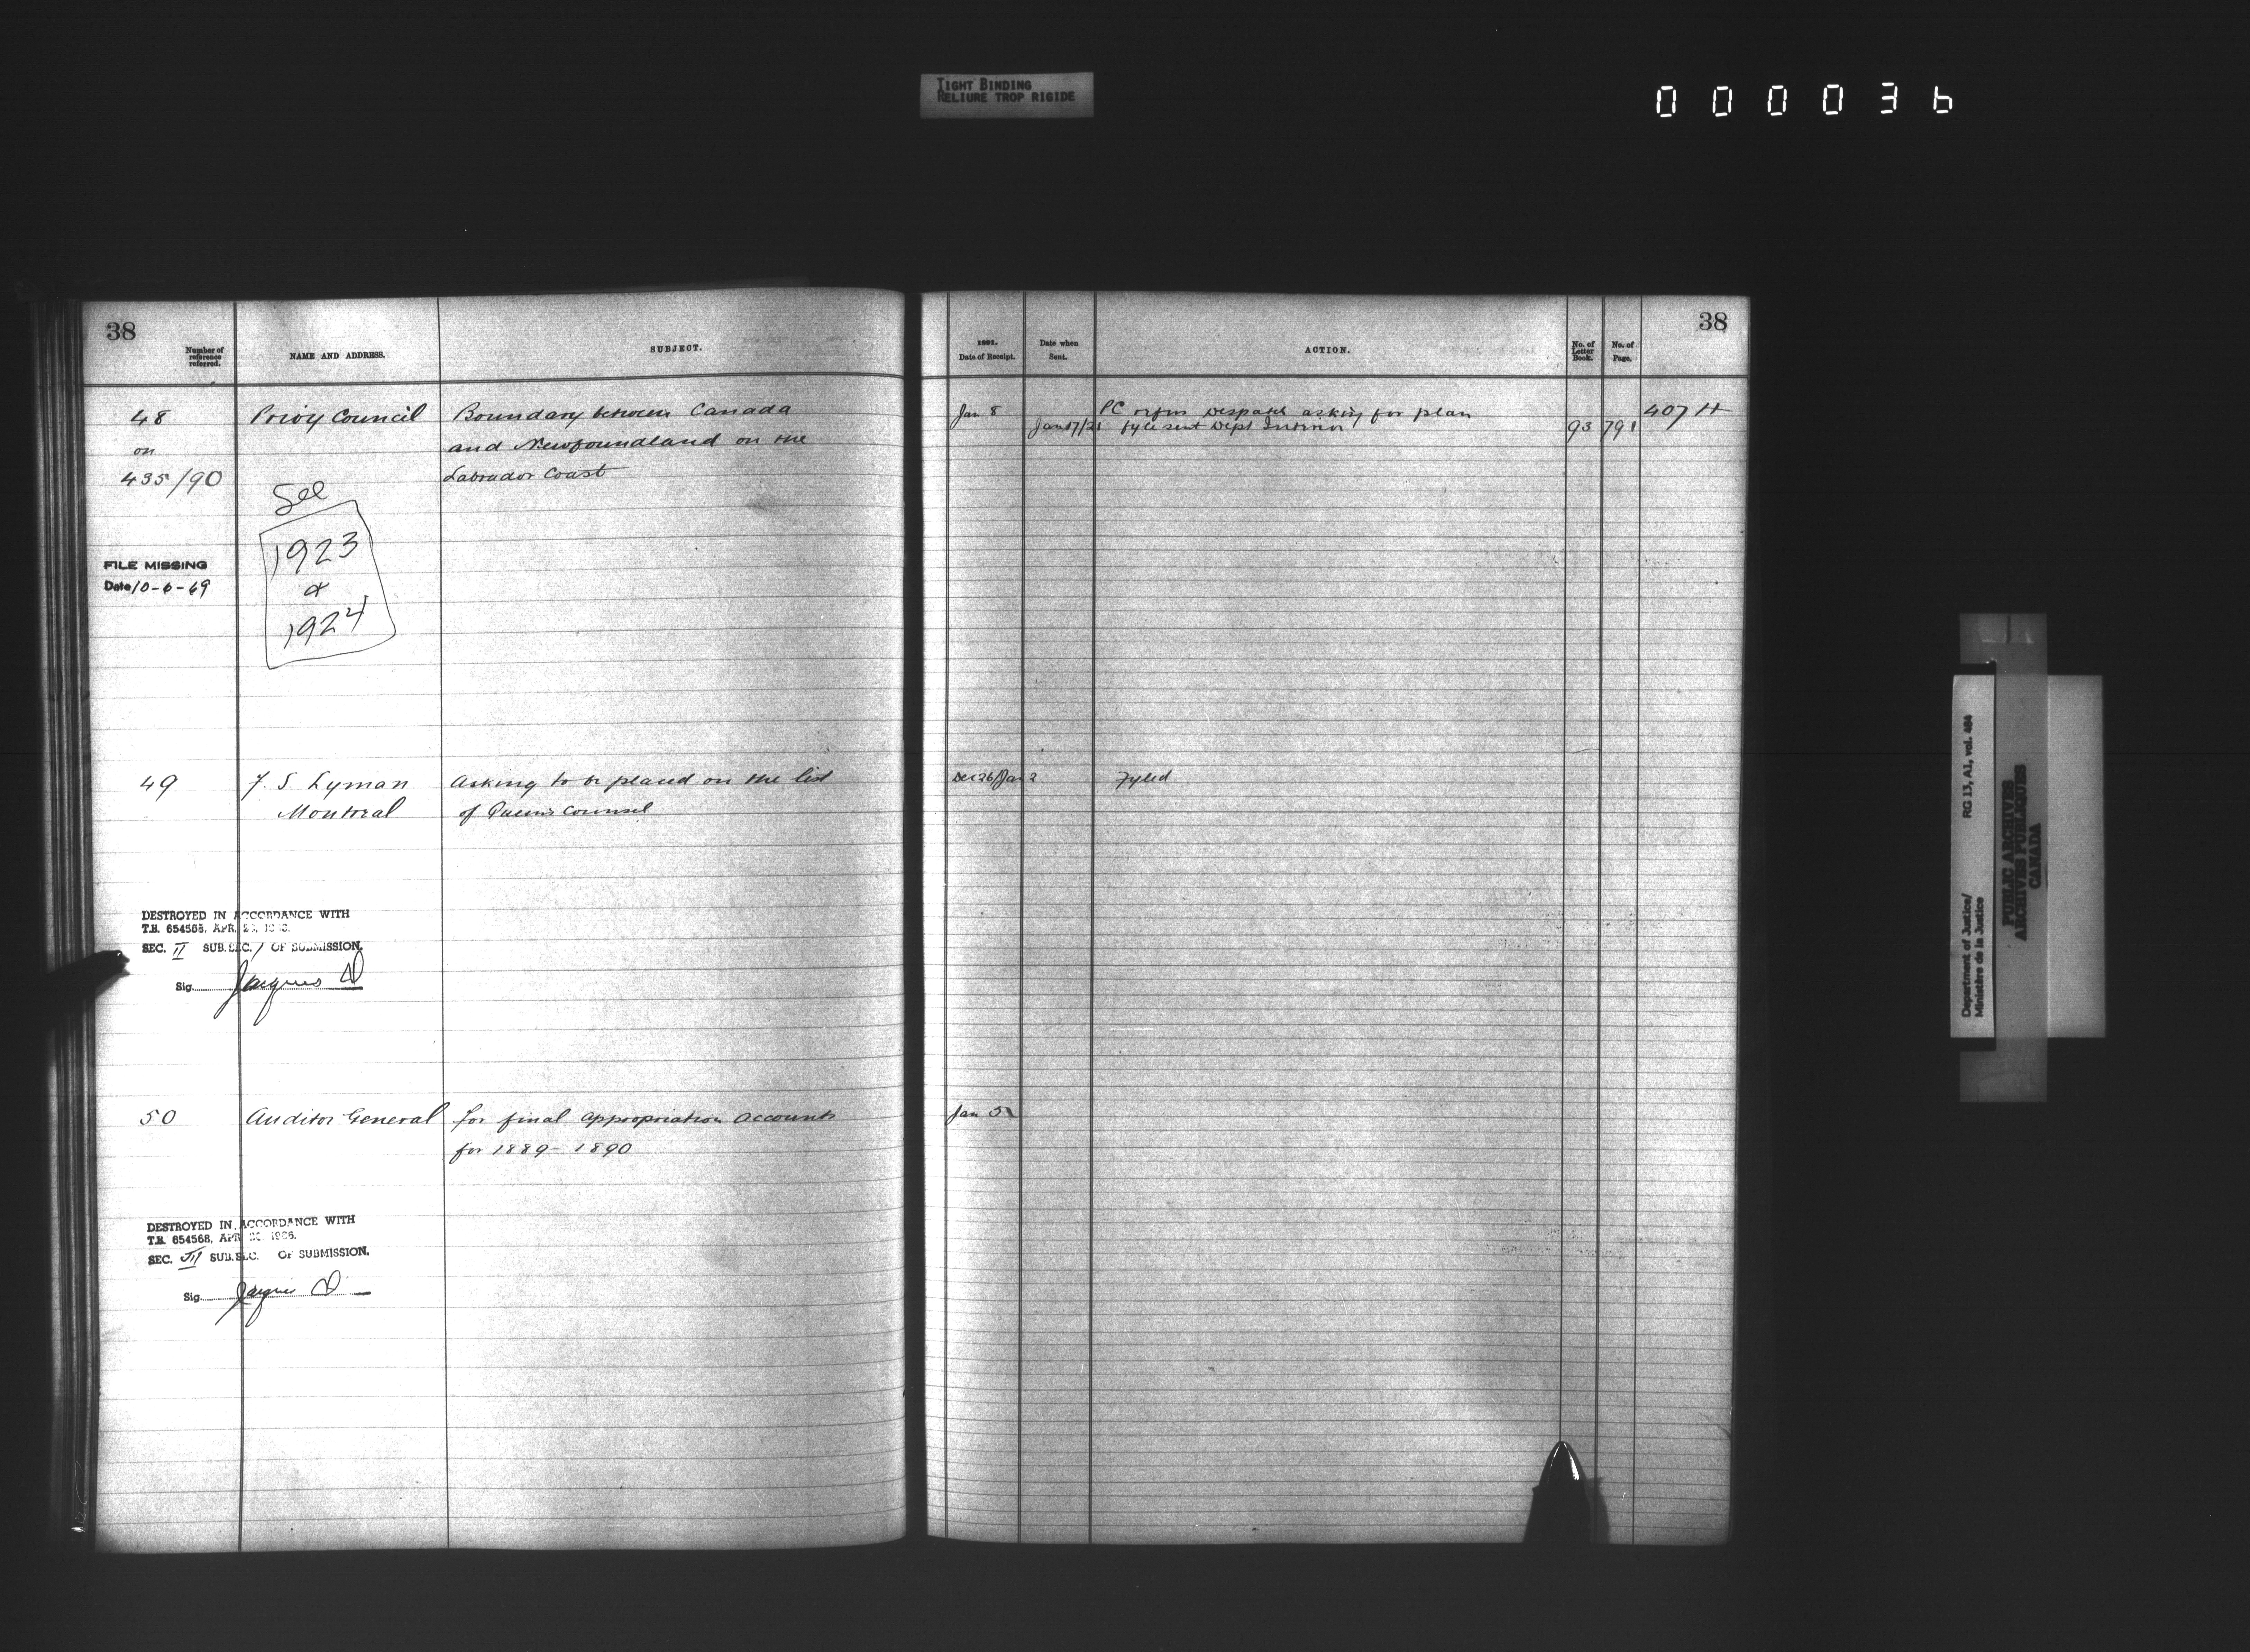 TIGHT BINDING
RELIURE TROP RIGIDE
000036
38
Number of reference referred.
NAME AND ADDRESS.
SUBJECT.
48
on
435/90
Privy Council
Boundary between Canada
and Newfoundland on the
Labrador Coast
See
1923
&
1924
FILE MISSING
Date 10-6-69
49
F. S. Lyman
Montreal
Asking to be placed on the list
of Queens Counsel
DESTROYED IN ACCORDANCE WITH
T.B. 654568, APR.
SEC. II SUB.SEC. 1 OF SUBMISSION.
Sig. Jacques
50
Auditor General
for final appropriation accounts
for 1889-1890
DESTROYED IN ACCORDANCE WITH
T.B. 654568, APR
SEC. III SUB.SEC. OF SUBMISSION.
Sig. Jacques
38
1891.
Date of Receipt.
Date when Sent.
ACTION.
No. of Letter Book.
No. of Page.
Jan 8
PC refers despatch asking for plan
407 H
Jan 17/21
fyle sent Dept Interior
93
791
Dec 26/Jan 2
Fyled
Jan 5
Department of Justice/
Ministère de la Justice
RG 13, A1, vol. 484
PUBLIC ARCHIVES
ARCHIVES PUBLIQUES
CANADA